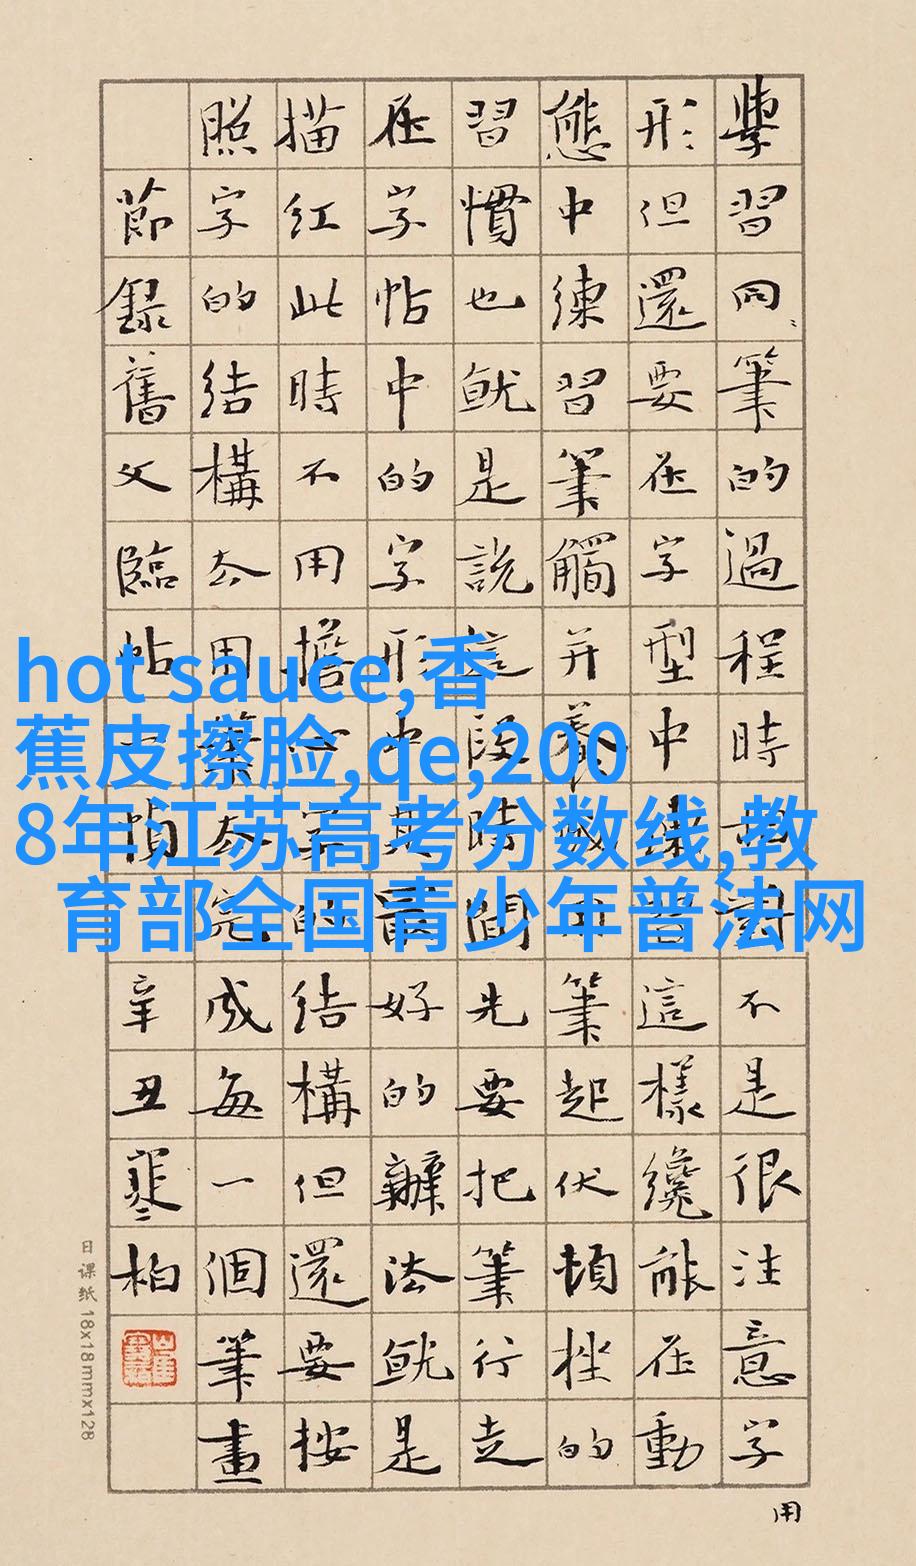 學習同筆的過程時對不是很注意字
形但還要在字型中練習這樣纔能在動
態中練習筆觸并養成用筆起伏頓挫的
習慣也就是說這段時間先要把筆行走
在字帖中的字形中最好的辦法就是
描紅此時不用擔心字的結構但還要按
照字的結構去用筆去完成每一個筆畫
節錄舊文臨帖幀辛丑寒柏
用
日课纸 18x18mmx128
hot sauce,香
蕉皮擦脸,qe,200
8年江苏高考分数线,教
育部全国青少年普法网